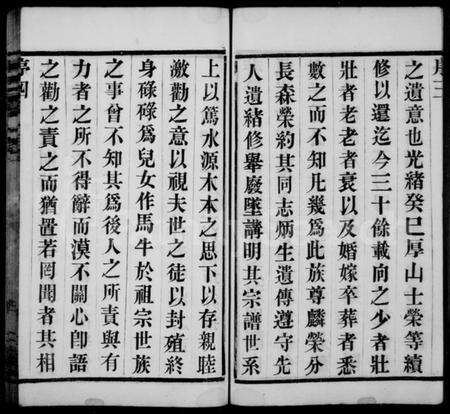 之遺意也光緒癸巳厚山士榮等續
修以還迄今三十餘載向之少者壯
壯者老老者衰以及婚嫁卒葬者悉
數之而不知凡幾爲此族尊麟榮分
長森榮約其同志炳生遺傳遵守先
人遺緒修舉廢墜講明其宗譜世系
上以篤水源木本之思下以存親睦
激勸之意以視夫世之徒以封殖終
身碌碌爲兒女作馬牛於祖宗世族
之事曾不知其爲後人之所責與有
力者之所不得辭而漠不關心卽語
之勸之責之而猶置若罔聞者其相